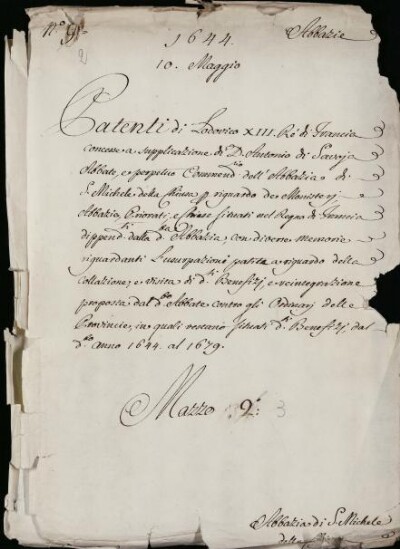 Abbazie
1644.
10. Maggio
Patenti di Lodovico XIII. Ré di Francia
concesse a supplicazione di D. Antonio di Savoja
Abbate, e perpetuo Commend.rio dell'Abbazia di
S. Michele della Chiusa p riguardo de Monisterj
Abbazie, Priorati, e situati nel Regno di Francia
dippend.ti dalla d.ta Abbazia, con diverse memorie
riguardanti l'usurpazione patita a riguardo della
Collazione, e visita di d.ti Beneffizj, e reintegrazione
proposta dal d.to Abbate contro gli Ordinarj delle
Provincie, in quali restano situati d.ti Beneffizj, dal
d.to anno 1644. al 1679.
Mazzo 2.° 3
Abbazia di S. Michele
della